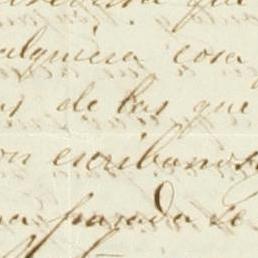 que
alquiera cosa
as de las que
on escribanos
na pasada se